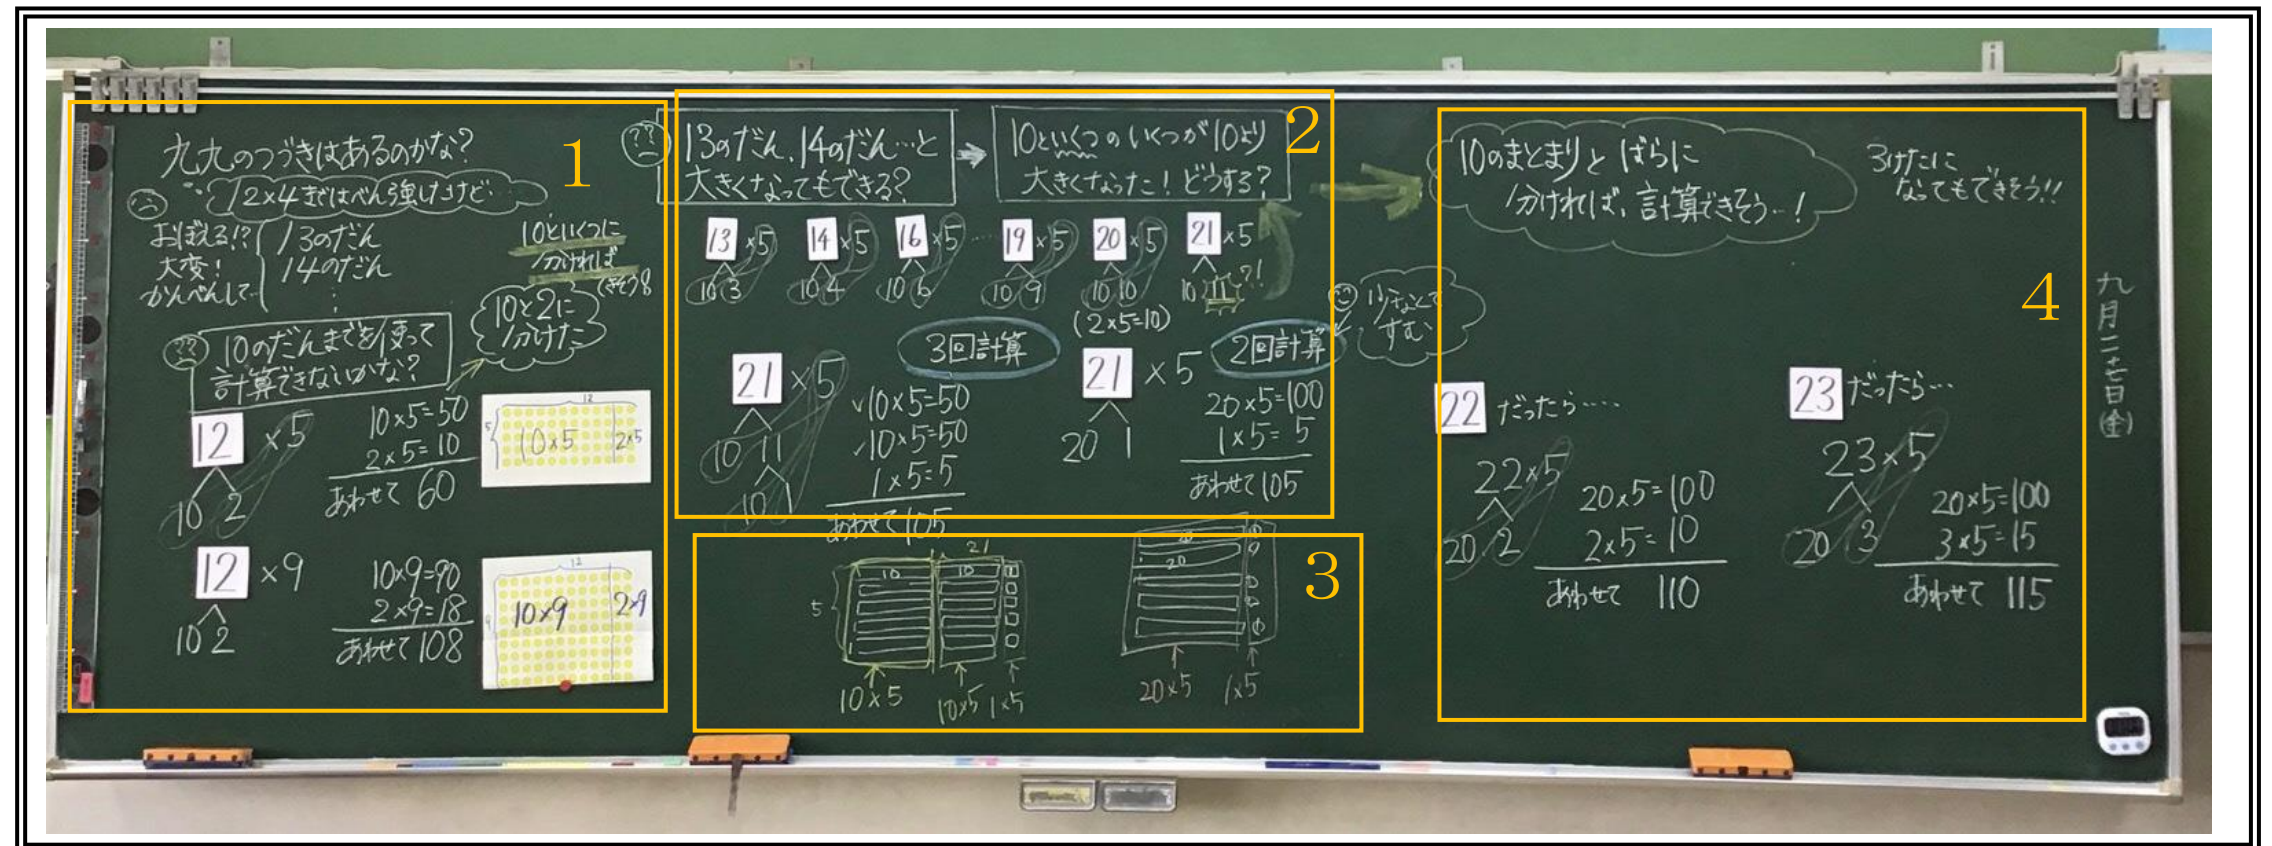 1
九九のつづきはあるのかな?
12×4まではべん強したけど…
おぼえる!?
大変!
かんべんして…
13のだん
14のだん
⋮
10といくつに
分ければ
できそう
??
10のだんまでを使って
計算できないかな?
10と2に
分けた
12×5
10 2
10×5=50
2×5=10
あわせて 60
12
5
10×5
2×5
12×9
10 2
10×9=90
2×9=18
あわせて 108
12
9
10×9
2×9
2
??
13のだん、14のだん…と
大きくなってもできる?
10といくつのいくつが10より
大きくなった!どうする?
13×5
10 3
14×5
10 4
16×5
10 6
…
19×5
10 9
20×5
10 10
(2×5=10)
21×5
10 11
?!
3回計算
21×5
10 11
10 1
10×5=50
10×5=50
1×5=5
あわせて 105
2回計算
少なくて
すむ
21×5
20 1
20×5=100
1×5=5
あわせて 105
3
21
10
10
1
5
10×5
10×5
1×5
20
20×5
1×5
4
10のまとまりとばらに
分ければ、計算できそう…!
3けたに
なってもできそう!!
22だったら…
22×5
20 2
20×5=100
2×5=10
あわせて 110
23だったら…
23×5
20 3
20×5=100
3×5=15
あわせて 115
九月二七日(金)